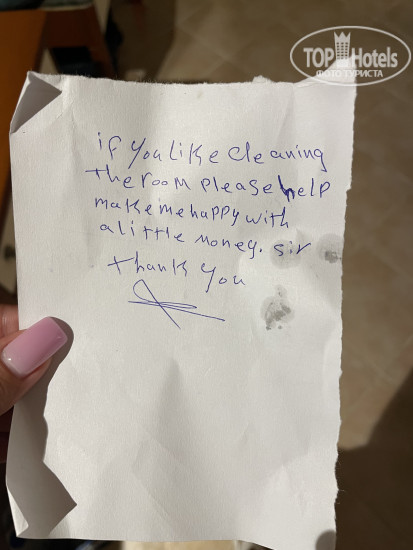 TOP Hotels
ФОТО ТУРИСТА
if you Like cleaning
the room please help
make me happy with
a little money. sir
thank you